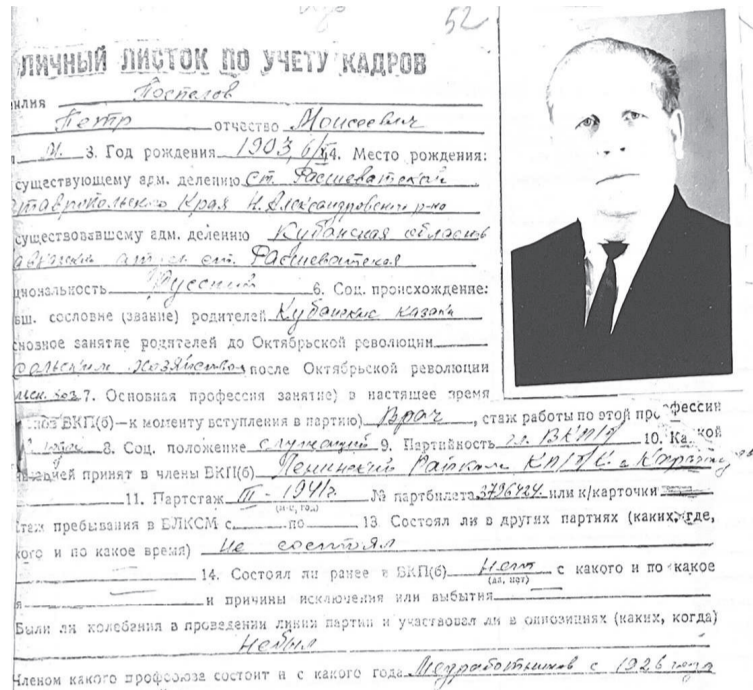 52
ЛИЧНЫЙ ЛИСТОК ПО УЧЕТУ КАДРОВ
илия Поспелов
Петр отчество Моисеевич
М. 3. Год рождения 1903, 6/ 4. Место рождения:
существующему адм. делению ст. Расшеватской
Ставропольского Края Н. Александровский р-но
существовавшему адм. делению Кубанская область
ст. Расшеватская
циональность Русский 6. Соц. происхождение:
вш. сословие (звание) родителей Кубанские казаки
сновное занятие родителей до Октябрьской революции
сельским хозяйством после Октябрьской революции
7. Основная профессия занятие) в настоящее время
ВКП(б)—к моменту вступления в партию) Врач, стаж работы по этой профессии
8. Соц. положение служащий 9. Партийность ВКП/б 10. Какой
принят в члены ВКП(б) Ленинский Райком КП/б/К.
11. Партстаж III-1941г. № партбилета 3796424. или к/карточки
(м-ц, год)
стаж пребывания в ВЛКСМ с по 13. Состоял ли в других партиях (каких, где,
кого и по какое время) не состоял
14. Состоял ли ранее в ВКП(б) Нет с какого и по какое
(да, нет)
я и причины исключения или выбытия
Были ли колебания в проведении линии партии и участвовал ли в оппозициях (каких, когда)
Не был
Членом какого профсоюза состоит и с какого года Медработников с 1926 года